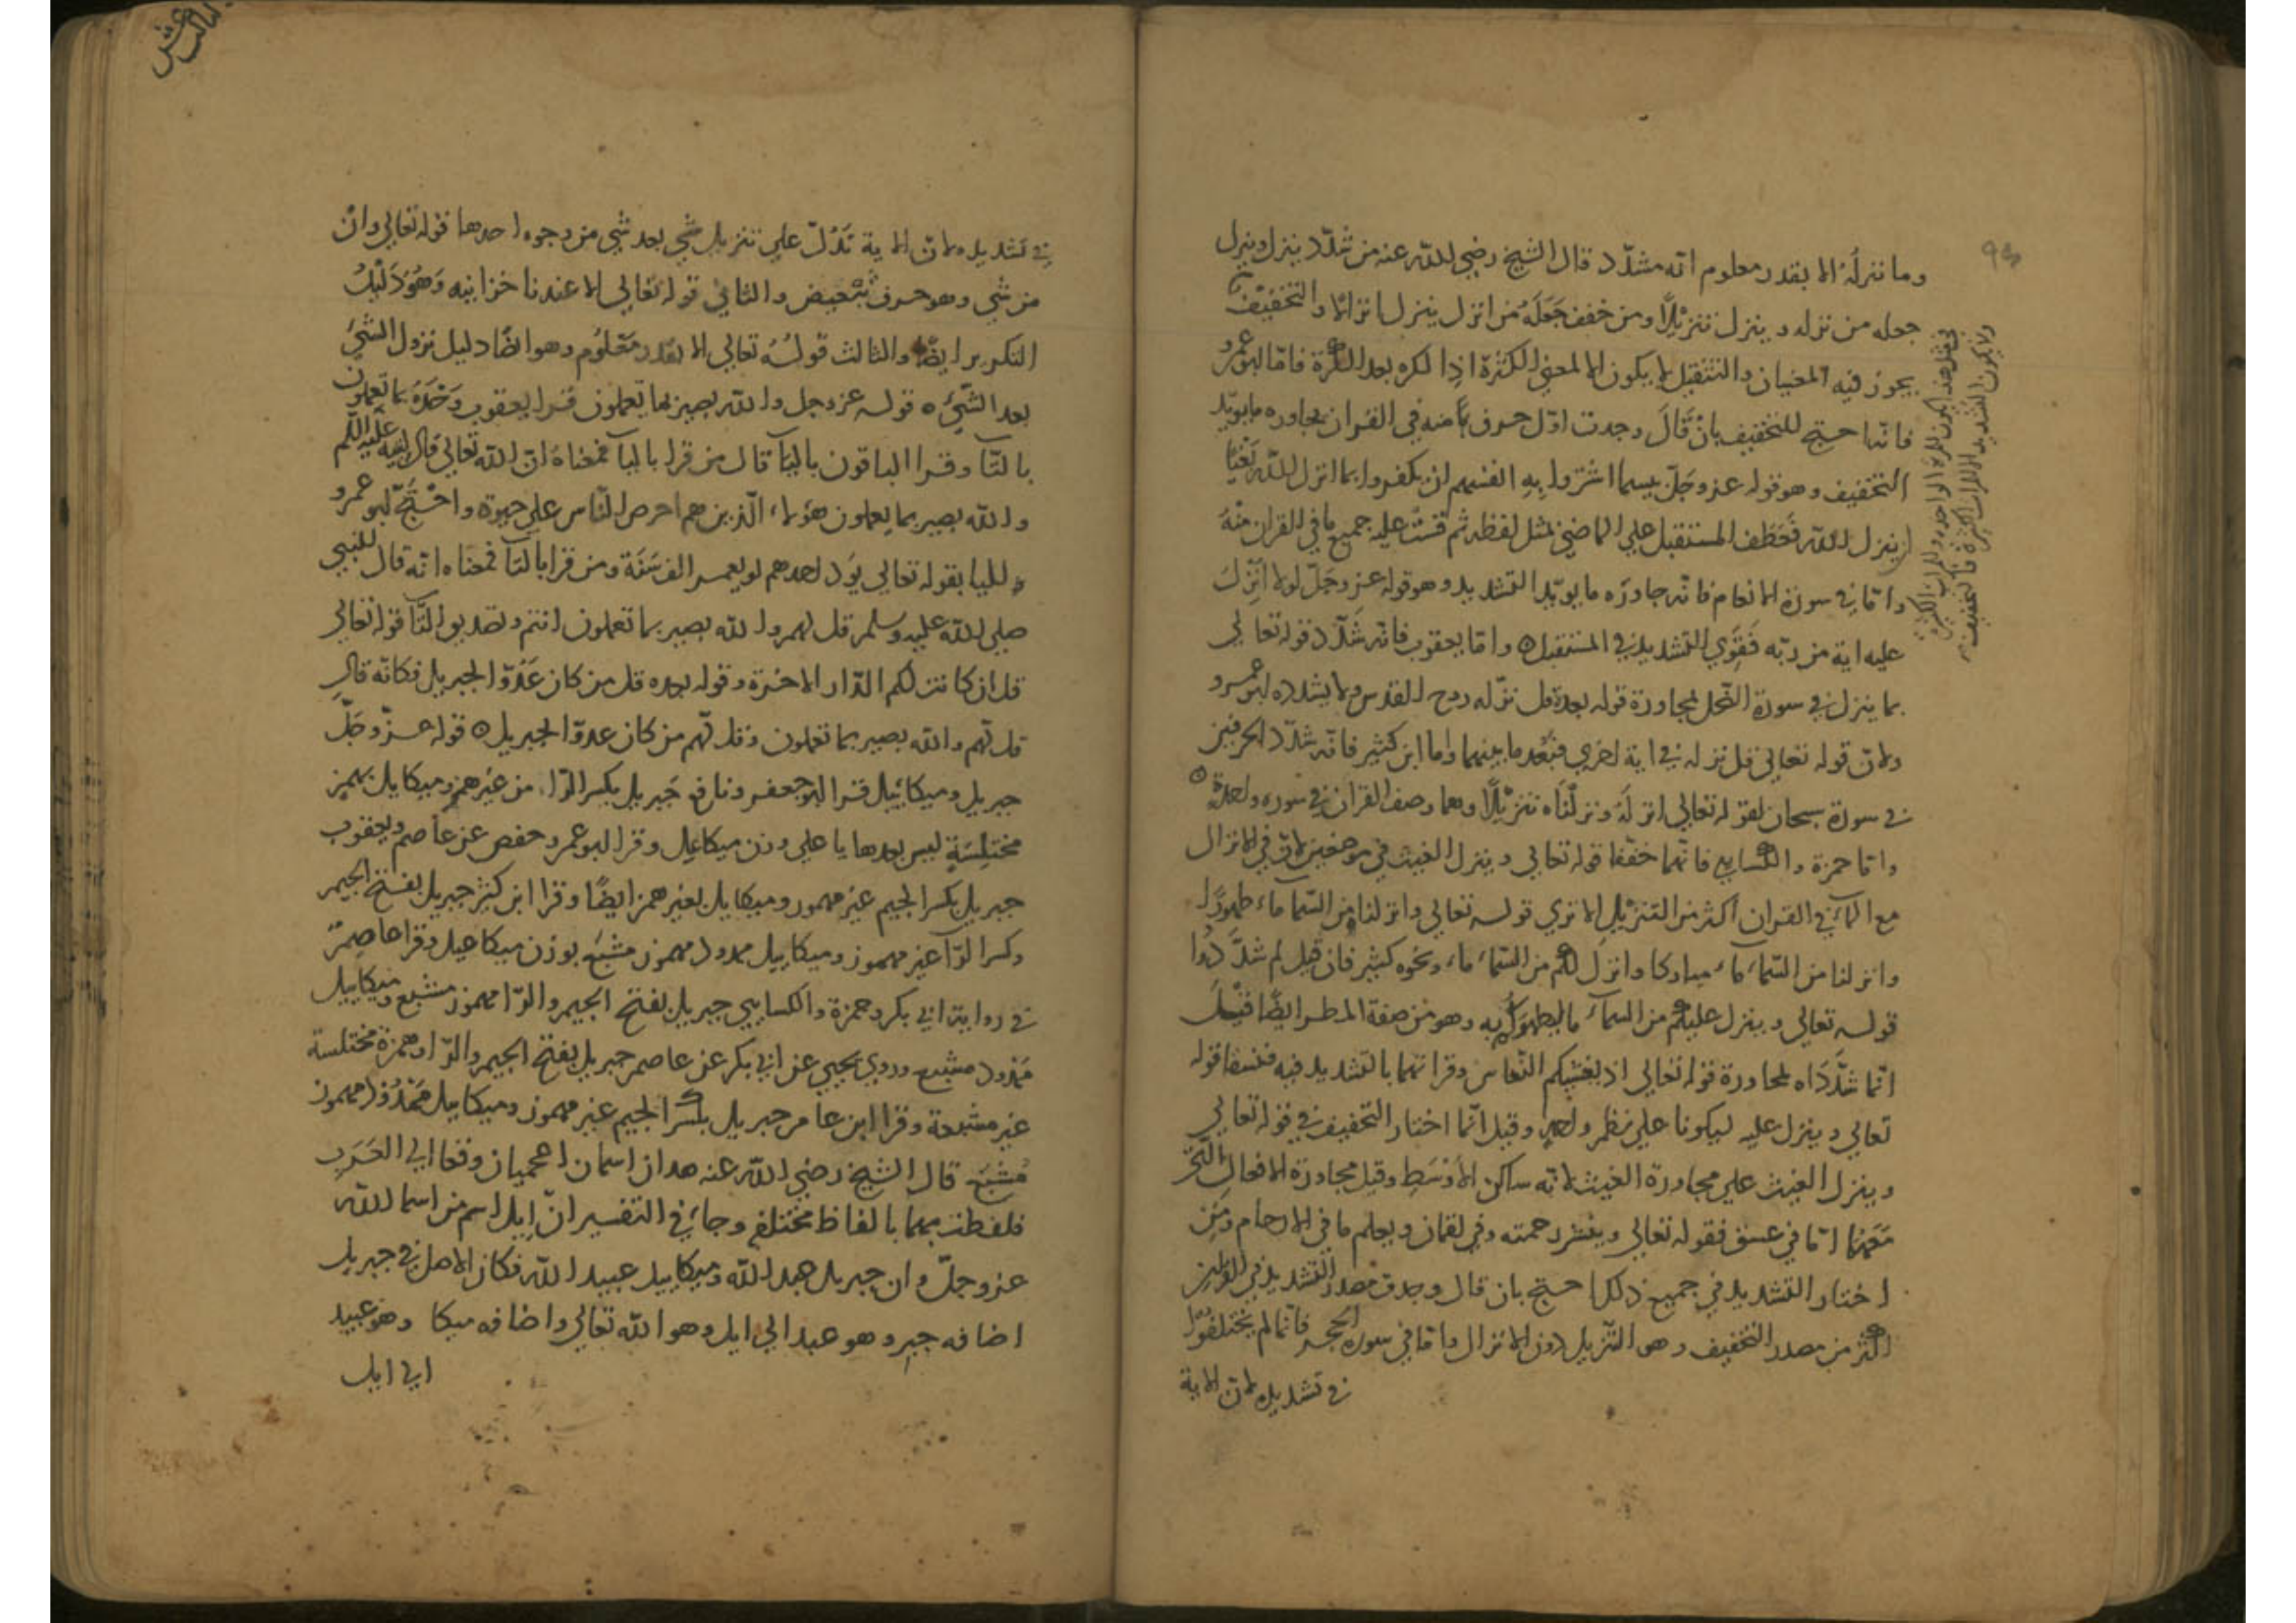 ٩٣
وما ننزله الا بقدر معلوم انه مشدّد قال الشيخ رضي الله عنه من شدّد ينزل وينزل
جعله من نزله وينزل تنزيلًا ومن خفف جَعَلَهُ من انزل ينزل انزالًا والتخفيف
يجوز فيه المعنيان والتثقيل لا يكون الا لمعنى الكثرة اذا لكره بعد الكرة فامّا ابو عمرو
فانه احتج للتخفيف بان قَالَ وجدت اوّل حرف منه في القران يجاوره ما يويّد
التخفيف وهو قوله عز وجَلّ بيسما اشتروا بِهِ انفسهم ان يكفروا بما انزل الله بَغْيًا
ان ينزل الله فَعَطَف المستقبل علي الماضي بمثل لفظه ثم قستُ عليه جميع ما في القران منْهُ
وامّا في سورة الانعام فانّه جاوَرَه ما يويّد التشديد وهو قوله عز وجَلّ لولا انزل
عليه اية من ربّه فَقَوِّي التشديد في المستقبل ٥ وامّا يعقوب فانّه شدّد قوله تعالي
بما ينزل في سورة النّحل لمجاورة قوله بعده قل نزّله روح القدس ولا يشدده ابو عمرو
ولانّ قوله تعالي قل نزله في اية اخري فبَعُد ما بينهما واما ابن كثير فانّه شدّد الحرفين
في سورة سبحان لقوله تعالي انزلهُ ونزلْنَاه تنزيلًا وهما وصف القران في سوره واحدة ٥
وامّا حمزة والكسايي فانّهما خفّفا قوله تعالي وينزل الغيث في موضعين لانّ في الانزال
مع المآء في القران اكثر من التنزيل الا تري قوله تعالي وانزلنا من السّمآ ماء طهورًا
وانزلنا من السّماء ماء مباركا وانزل لكم من السّماء ماء ونحوه كثير فان قيل لم شدَّدُوا
قوله تعالي وينزل عليكم من السمآء ما ليطهركم به وهو من صفة المطر ايضًا فقيل
انّما شدَّدَاه لمجاورة قوله تعالي اذ يغشيكم النّعاس وقراتهما بالتشديد فيه فنسقا قوله
تعالي وينزل عليه ليكونا علي نظم واحدٍ وقيل انّما اختار التخفيف في قوله تعالي
وينزل الغيث علي مجاورة الغيث لانّه ساكن الاوْسَطِ وقيل مجاورة الافعال الّتي
مَعَهُمَا امّا في عسق فقوله تعالي وينشر رحمته وفي لقمان ويعلم ما في الارحام ومَن
اختار التشديد في جميع ذلك احتج بان قال وجدتُ مصدر التشديد في القران
اكثر من مصدر التخفيف وهو التّنزيل دون الانزال وامّا في سورة الحجر فانّما لم يختلفوا
في تشديده لانّ الاية
ولا يكون التشديد الا للمرات الكثيرة فالتخفيف
في تشديده لانّ الاية تَدُلّ علي تنزيل شي بعد شي من وجوه احدها قوله تعالي وانْ
من شي وهو حرف تبْعيض والثاني قوله تعالي الا عندنا خزاينه وَهُوَ دَليْلُ
التكرير ايضًا والثالث قولُهُ تعالي الا بقدر مَعْلُوم وهو ايضًا دليل نزول الشيْ
بعد الشّيْ ٥ قوله عز وجل والله بصير بما يعملون قرا يعقوب وَحْدَهُ بما تعملون
بالتّآ وقرا الباقون باليآ قال من قرا باليآ فمعناهُ انّ الله تعالي قال لنبيّه عَلَيْه السَّلم
والله بصير بما يعملون هؤلاء الّذين هم احرص النّاس علي حيوة واحْتَجَّ ابو عمرو
لليا بقوله تعالي يوَد احدهم لو يعمر الف سَنَة ومن قرا بالتآ فمعناه انّه قال للنبي
صلي الله عليه وسلم قل لهم والله بصير بما تعملون انتم وتصديق التّآ قوله تعالي
قل ان كانت لكم الدّار الاخرة وقوله بعده قل من كان عَدُوّا لجبريل فكانّه قال
قل لّهم والله بصير بما تعملون وقل لّهم من كان عدوّا لجبريل ٥ قوله عزّ وجَلّ
جبريل وميكائيل قرا ابو جعفر ونافع جَبريل بكسر الرّاء من غير همز وميكايل بهمز
مختلِسَةٍ ليس بعدها يا علي وزن ميكاعِل وقرا ابو عمرو وحفص عن عاصم ويعقوب
جبريل بكسر الجيم غير مهموز وميكايل بغير همز ايضًا وقرا ابن كثير جبريل بفتح الجيم
وكسر الرّآ غير مهموز وميكاييل ممدود مهموز مشبَع بوزن ميكاعيل وقرا عاصِمٌ
في رواية ابي بكر وحمزة والكسايي جبريل بفتح الجيم والرّا مهموز مشبع وميكاييل
مَمْدود مشبع وروي يحيي عن ابي بكر عن عاصم جبريل بفتح الجيم والرّا وهمزة مختلسة
غير مشبعة وقرا ابن عامر جبريل بكسر الجيم غير مهموز وميكاييل مَمْدُوْد مهموز
مُشبَع قال الشيخ رضي الله عنه هذان اسمان اعجميان وقعا الي العَرَبِ
فلفظت بهما بالفاظ مختلفةٍ وجاء في التفسير انّ اِيل اسم من اسما الله
عز وجلّ وان جبريل عبد الله وميكاييل عبيد الله فكان الاصل في جبريل
اضافه جبرِ وهو عبد الي ايل وهو الله تعالي واضافه ميكا وهو عبيد
الي ايل